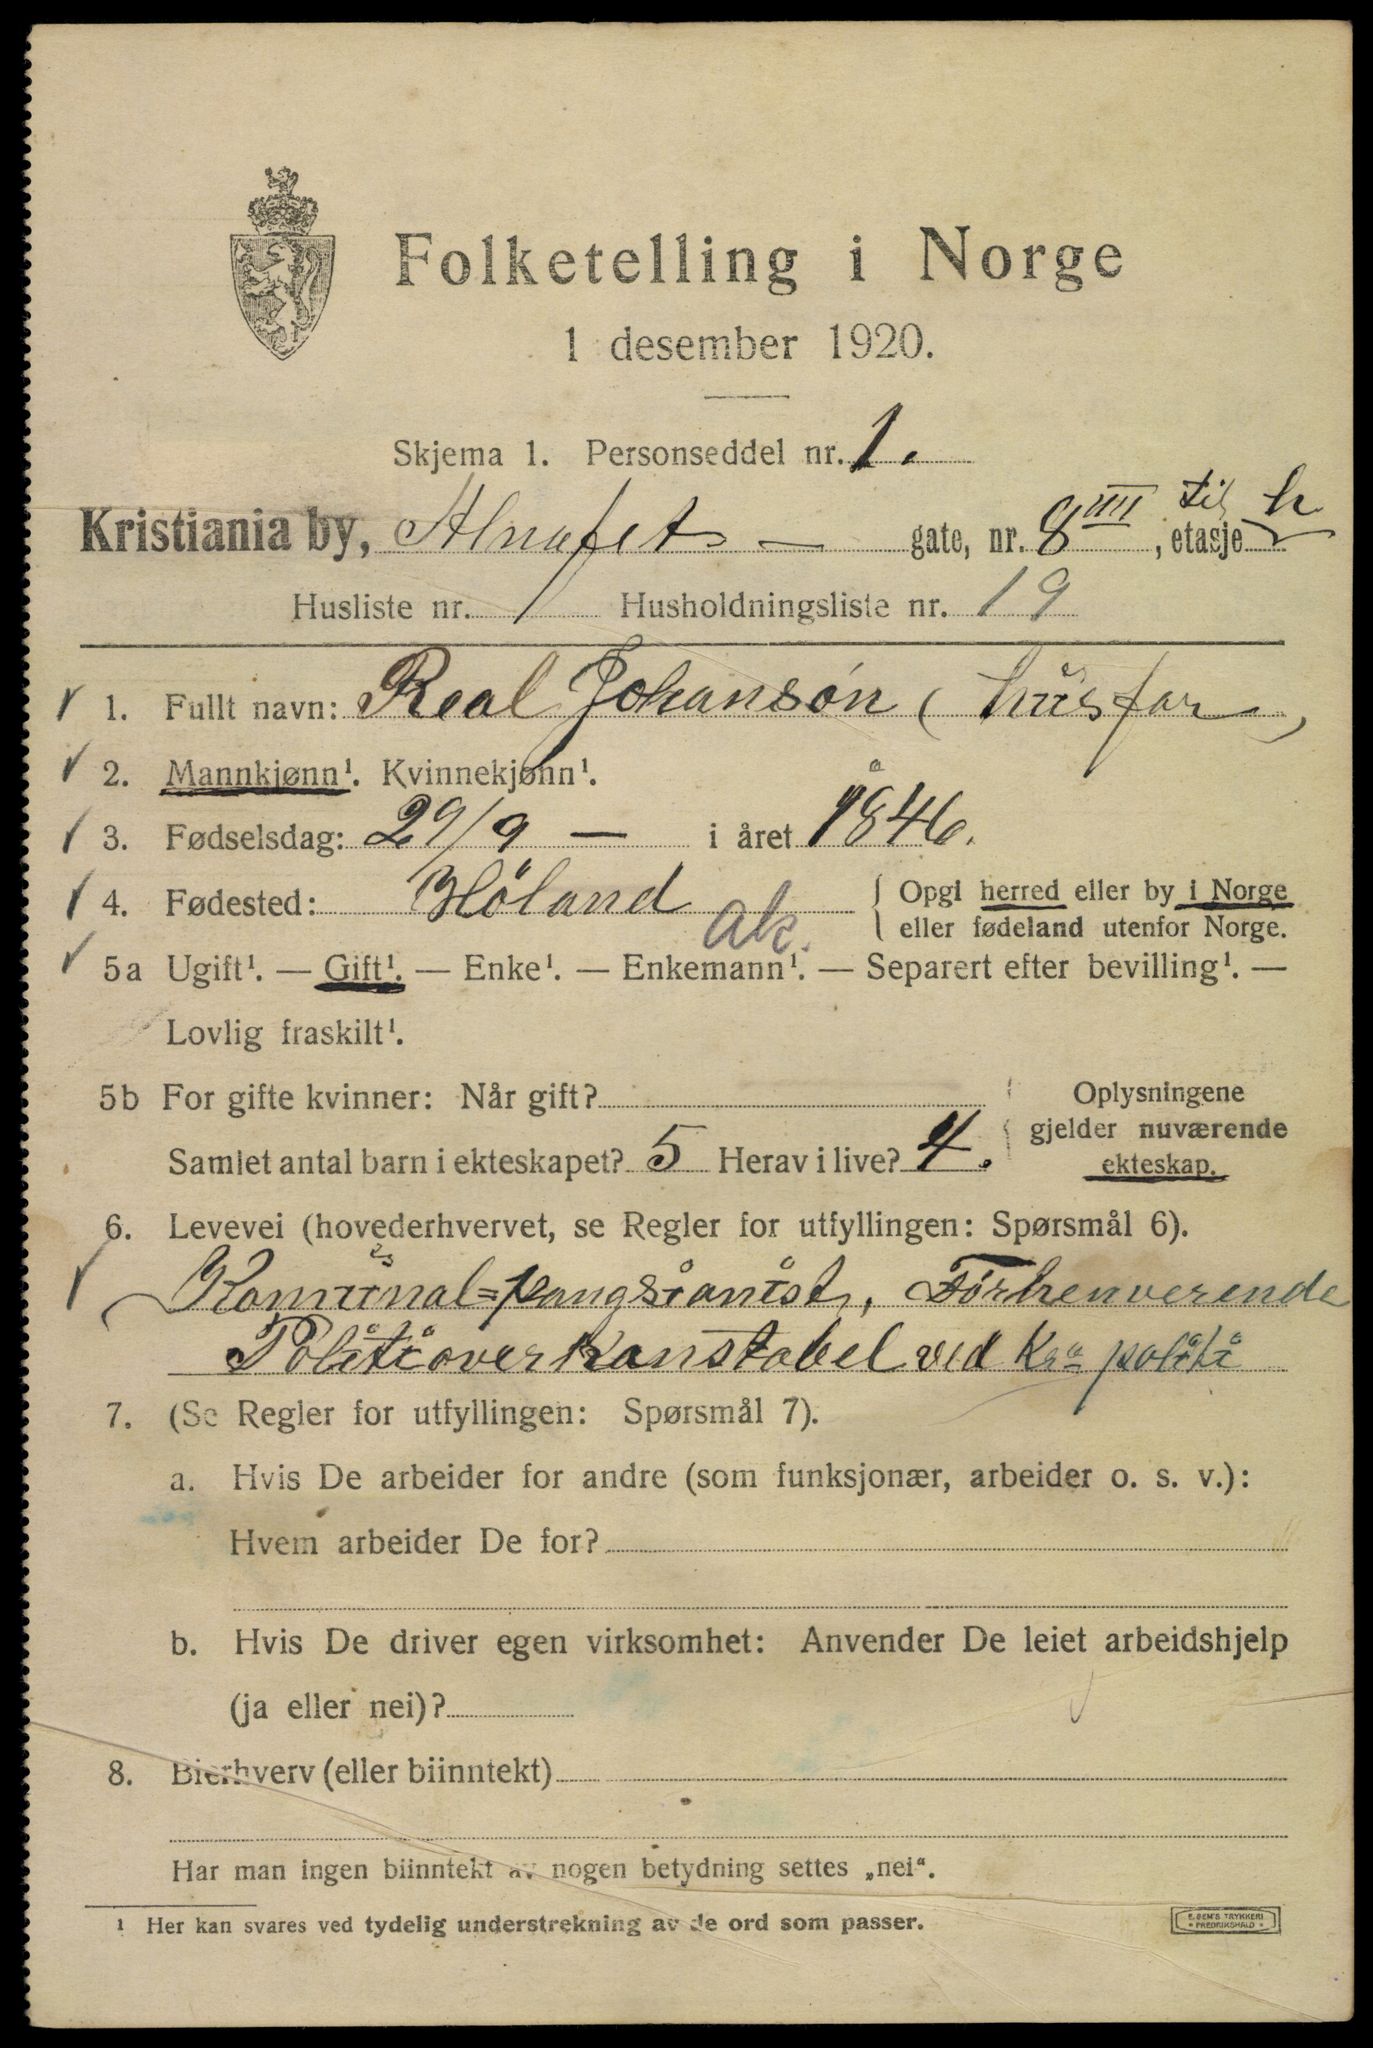 Folketelling i Norge
1 desember 1920.
Skjema 1. Personseddel nr. 1.
Kristiania by, Alnafet — gate, nr. 8 IIII, etasje til h
Husliste nr. 1 Husholdningsliste nr. 19
1. Fullt navn: Real Johansøn (husfar)
2. Mannkjønn¹. Kvinnekjønn¹.
3. Fødselsdag: 29/9 — i året 1846.
4. Fødested: Høland Ak. { Opgi herred eller by i Norge
eller fødeland utenfor Norge.
5a Ugift¹. — Gift¹. — Enke¹. — Enkemann¹. — Separert efter bevilling¹. —
Lovlig fraskilt¹.
5b For gifte kvinner: Når gift? { Oplysningene
gjelder nuværende
Samlet antal barn i ekteskapet? 5 Herav i live? 4.
ekteskap.
6. Levevei (hovederhvervet, se Regler for utfyllingen: Spørsmål 6).
Komunal=pangsianist, Førhenverende
Politioverkonstabel ved Kra politi
7. (Se Regler for utfyllingen: Spørsmål 7).
a. Hvis De arbeider for andre (som funksjonær, arbeider o. s. v.):
Hvem arbeider De for?
b. Hvis De driver egen virksomhet: Anvender De leiet arbeidshjelp
(ja eller nei)?
8. Bierhverv (eller biinntekt)
Har man ingen biinntekt av nogen betydning settes „nei“.
¹ Her kan svares ved tydelig understrekning av de ord som passer.
E. SEM'S TRYKKERI
• FREDRIKSHALD •